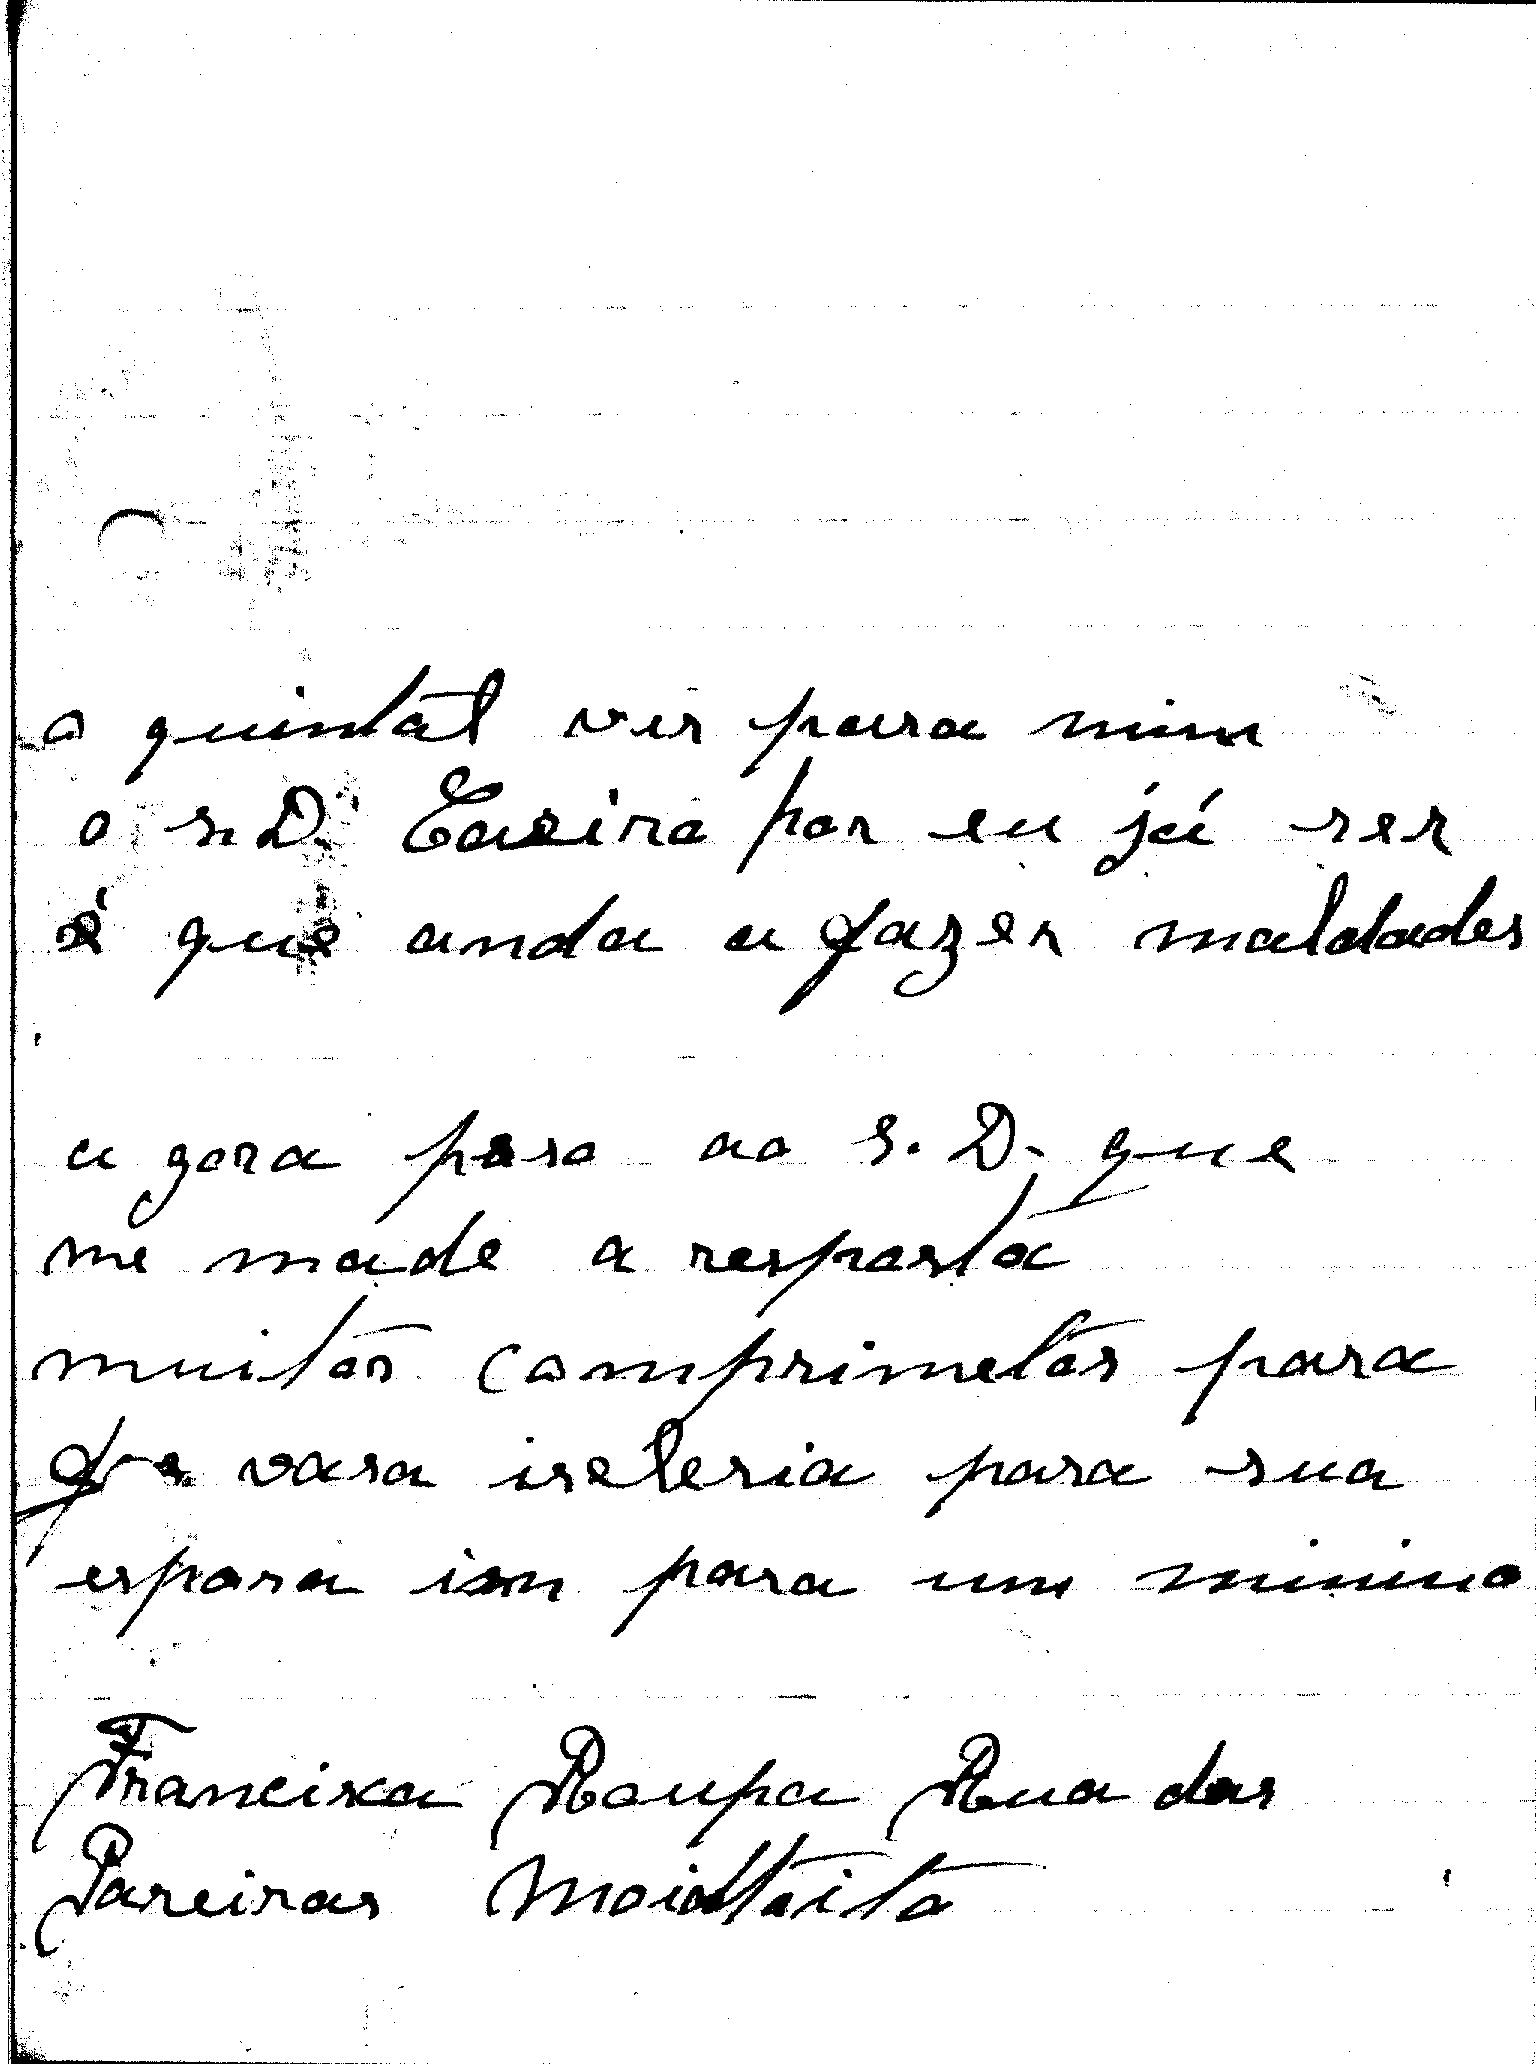 o quintal vir para mim
o s. D. Caeiro por eu já ser
é que anda a fazer maldades
a gora peso ao S. D. que
me made a resposta
muitos comprimetos para
vasa iseleria para sua
espora ism para um minino
Francisxa Roupa Rua das
Pareiras Moita